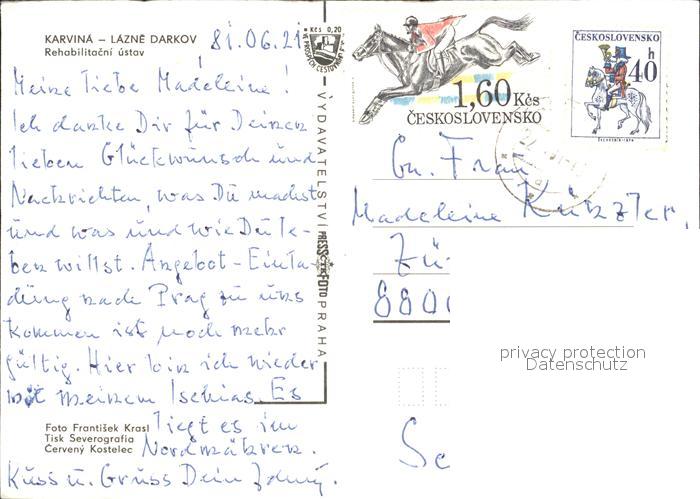 KARVINÁ – LÁZNĚ DARKOV
Rehabilitační ústav
81.06.21
Meine liebe Madeleine!
Ich danke Dir für Deinen
lieben Glückwunsch und
Nachrichten, was Du machst
und was und wie Du le-
ben willst. Angebot-Einla-
dung nach Prag zu uns
kommen ist noch mehr
gültig. Hier bin ich wieder
mit meinem Ischias. Es
liegt es im
Nordmähren.
Kuss u. Gruss Dein
Foto František Krasl
Tisk Severografia
Červený Kostelec
Kčs 0,20
VYDAVATELSTVÍ PRESSFOTO PRAHA
1,60 Kčs
ČESKOSLOVENSKO
ČESKOSLOVENSKO
40 h
Gn. Frau
Madeleine
Zü
880
Sc
privacy protection
Datenschutz